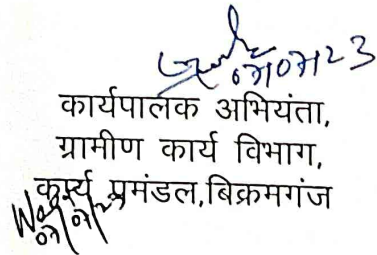 07/07/23
कार्यपालक अभियंता,
ग्रामीण कार्य विभाग,
कार्य प्रमंडल,बिक्रमगंज